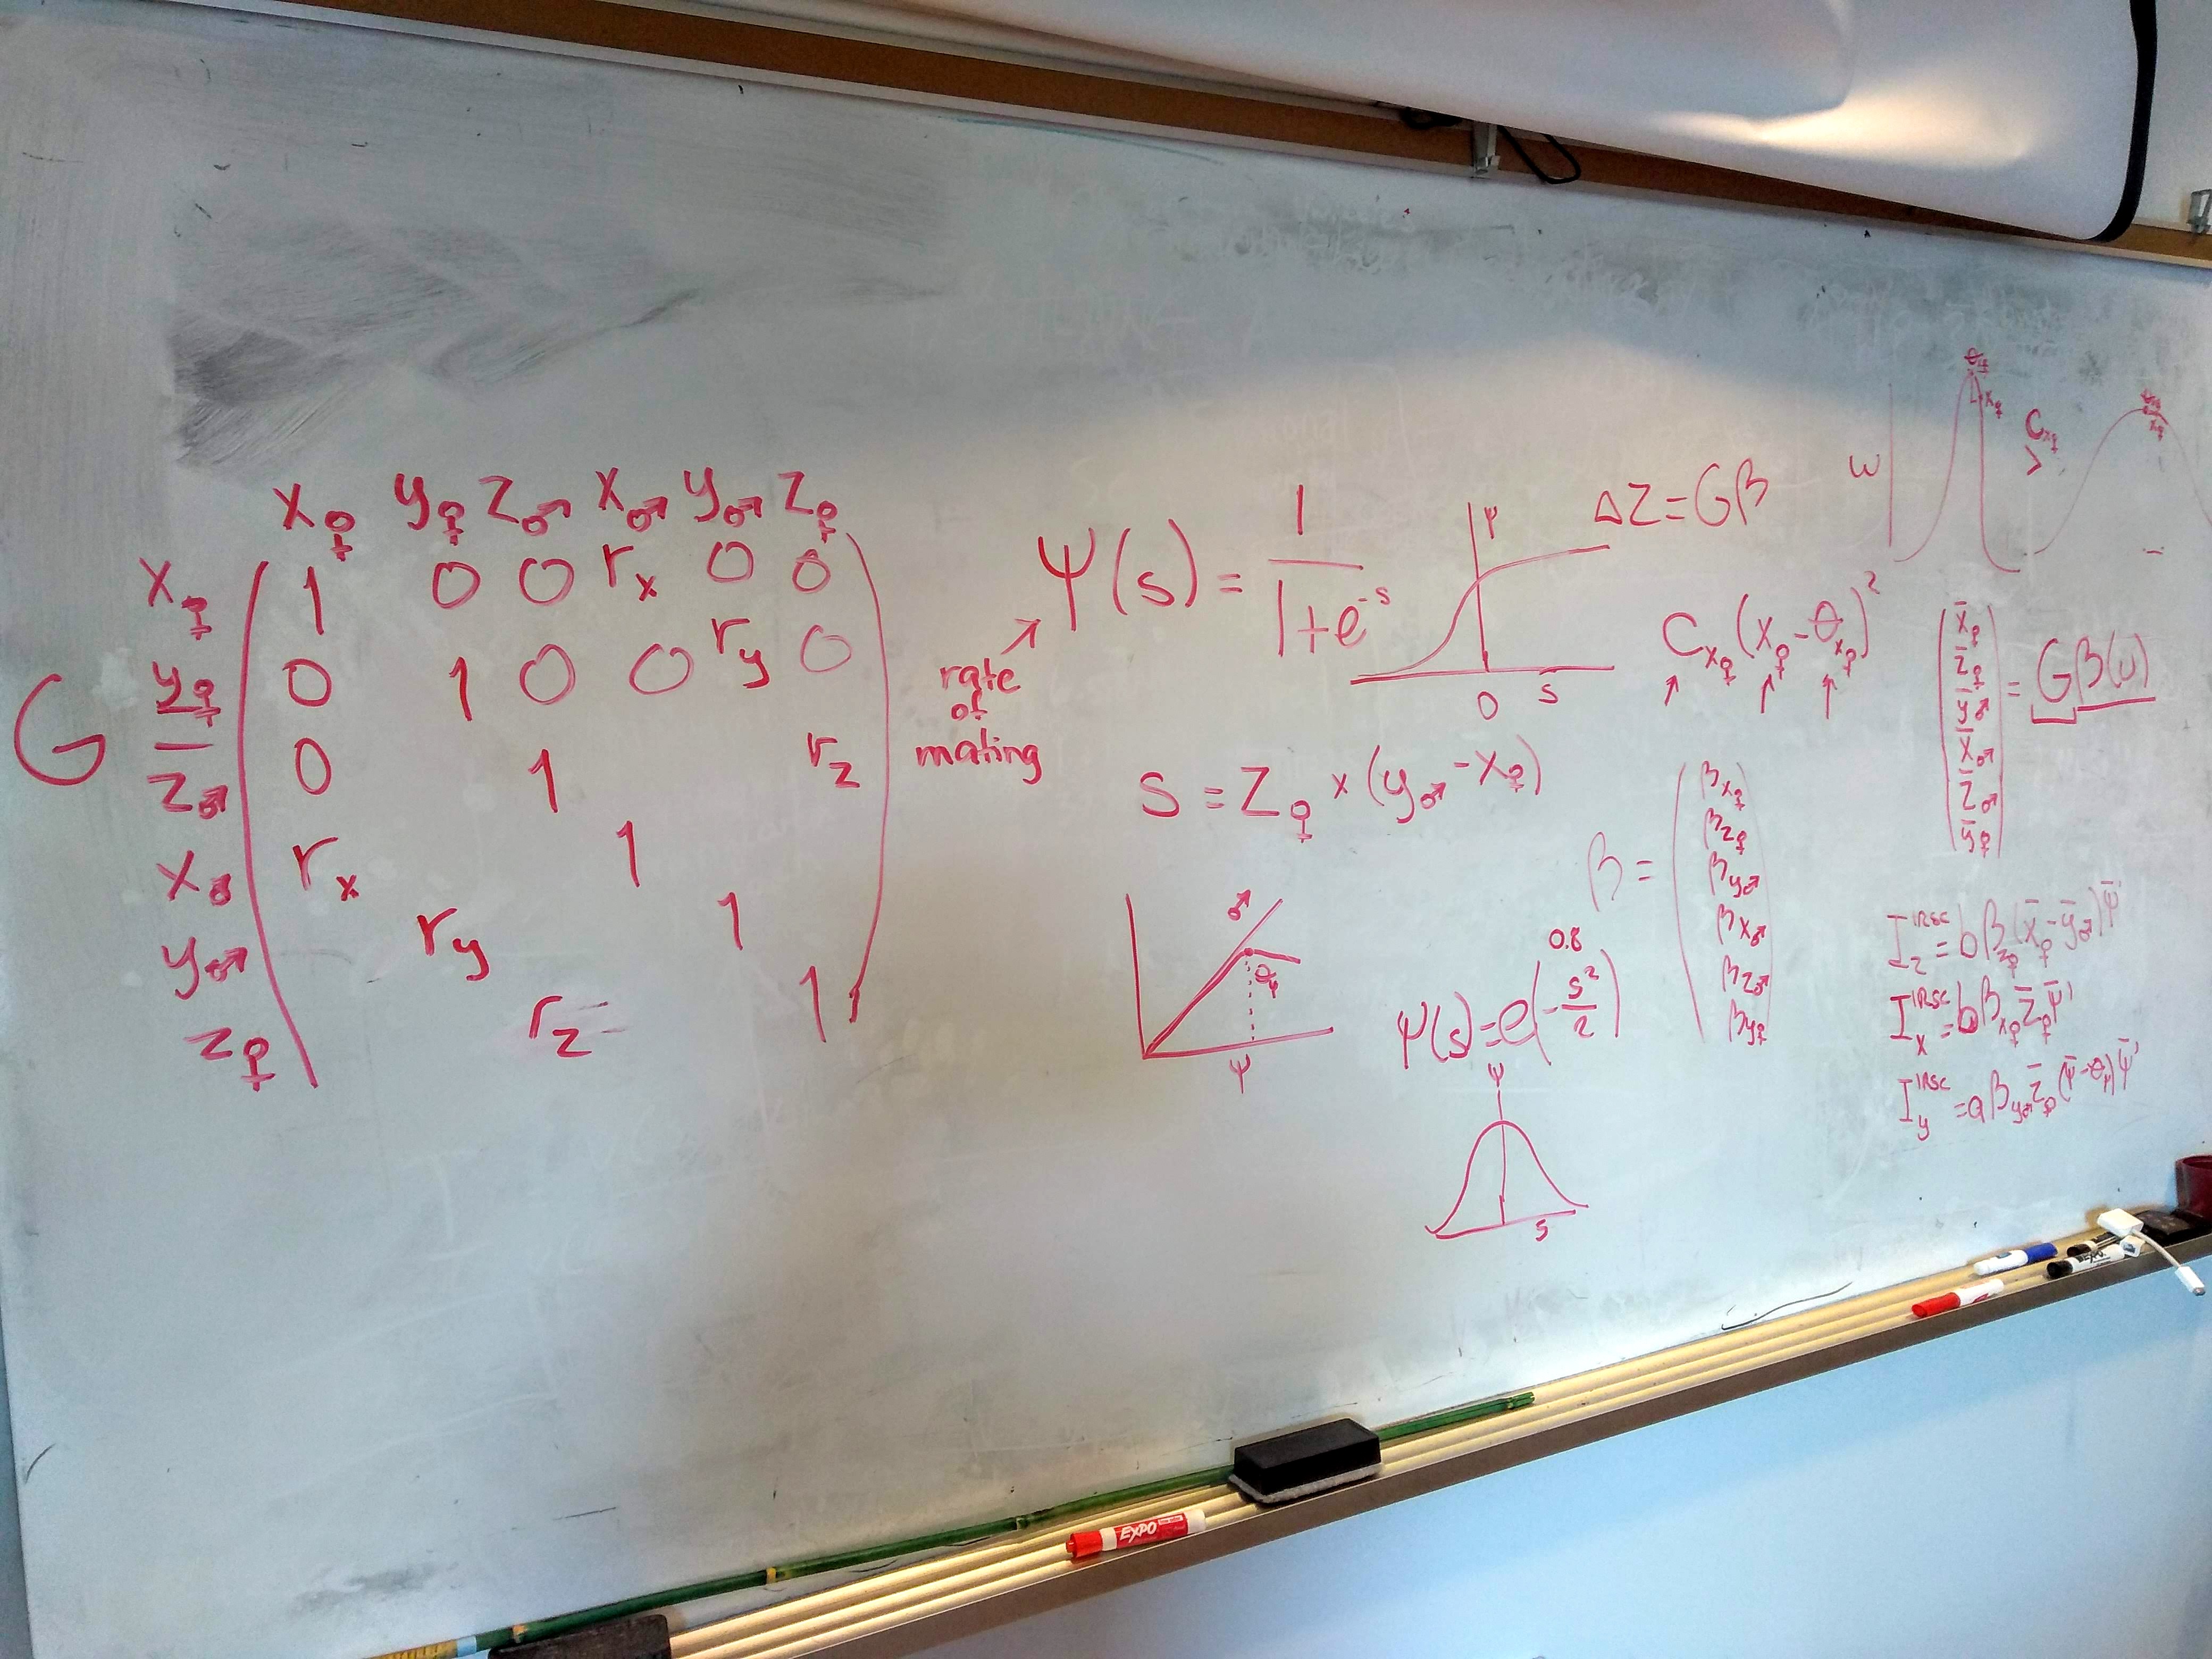 x♀ y♀ z♂ x♂ y♂ z♀
G
x♀ 1 0 0 rₓ 0 0
y♀ 0 1 0 0 r_y 0
z♂ 0 1 r_z
x♂ rₓ 1
y♂ r_y 1
z♀ r_z 1
rate
of
mating
ψ(s) = 1 / (1+e^-s)
ψ
0 s
ΔZ=Gβ
S = Z♀ × (y♂ - x♀)
C_x♀ (x♀ - θ_x♀)²
♂
θ_ψ
ψ
0.8
ψ(s)=e(-s²/2)
ψ
s
β =
β_x♀
β_z♀
β_y♂
β_x♂
β_z♂
β_y♀
ω
x♀
C_x♀
>
x̄♀
z̄♀
ȳ♂
x̄♂
z̄♂
ȳ♀
= Gβ(ω)
I_z^IRSC = bβ_z♀(x̄♀-ȳ♂)ψ̄'
I_x^IRSC = bβ_x♀ z̄♀ ψ̄'
I_y^IRSC = aβ_y♂ z̄♀ (ψ̄-θ_ψ)ψ̄'
EXPO
EXPO